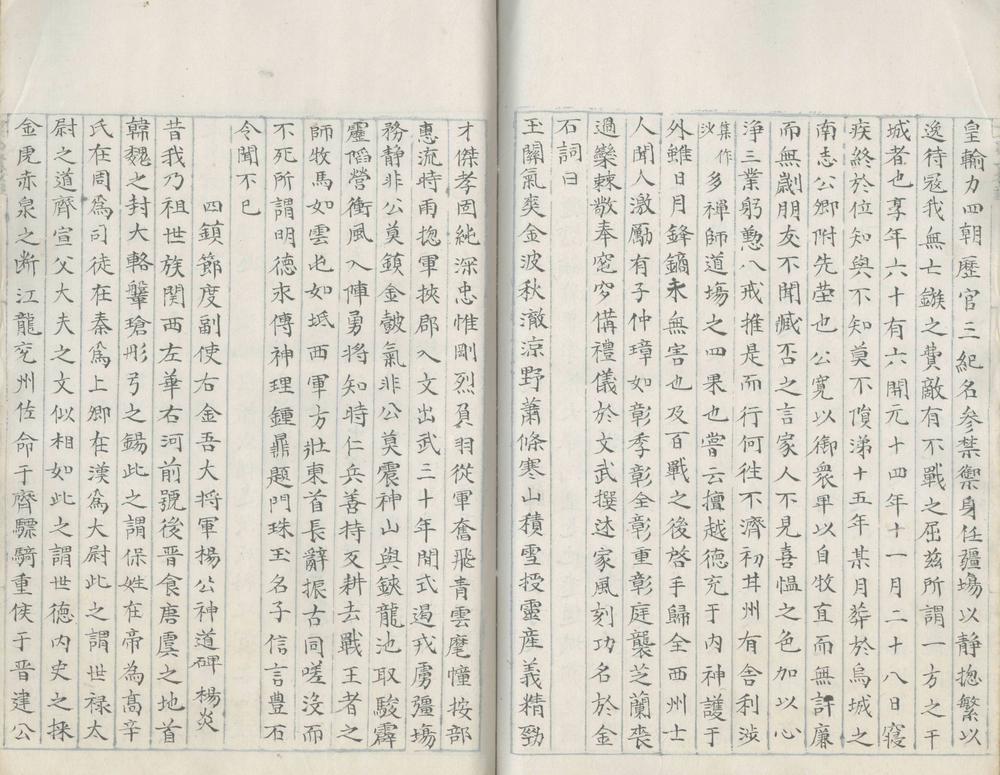 皇輸力四朝歷官三紀名參禁禦身任疆場以靜揔繁以
逸待寇我無亡鏃之費敵有不戰之屈茲所謂一方之干
城者也享年六十有六開元十四年十一月二十八日寢
疾終於位知與不知莫不隕涕十五年某月葬於烏城之
南志公鄉附先塋也公寬以御衆卑以自牧直而無訐廉
而無劌朋友不聞臧否之言家人不見喜慍之色加以心
淨三業躬懃八戒推是而行何徃不濟初其州有舍利涉
集作沙多禪師道塲之四果也嘗云擅越德充于内神護于
外雖日月鋒鏑永無害也及百戰之後啓手歸全西州士
人聞人激勵有子仲璋如彰季彰全彰重彰庭襲芝蘭喪
過欒棘敬奉窀穸俻禮儀於文武撰述家風刻功名於金
石詞曰
玉關氣爽金波秋澈涼野蕭條寒山積雪授靈産義精勁
才傑孝固純深忠惟剛烈負羽從軍奮飛青雲麾幢按部
惠流時雨揔軍挾郡入文出武三十年間式遏戎虜疆場
務静非公莫鎮金皷氣非公莫震神山與鋏龍池取駿霹
靂㗖營衝風入陣勇將知時仁兵善持反耕去戰王者之
師牧馬如雲屯如坻西軍方壯東首長辭振古同嗟沒而
不死所謂明德永傳神理鍾鼎題門珠玉名子信言豊石
令聞不已
四鎮節度副使右金吾大将軍楊公神道碑 楊炎
昔我乃祖世族関西左華右河前號後晉食唐虞之地首
韓魏之封大輅鞶瑲彤弓之錫此之謂保姓在帝為髙辛
氏在周爲司徒在秦爲上卿在漢爲大尉此之謂世禄太
尉之道齊宣父大夫之文似相如此之謂世徳内史之探
金虎赤泉之断江龍兖州佐命于齊驃騎重侯于晋建公